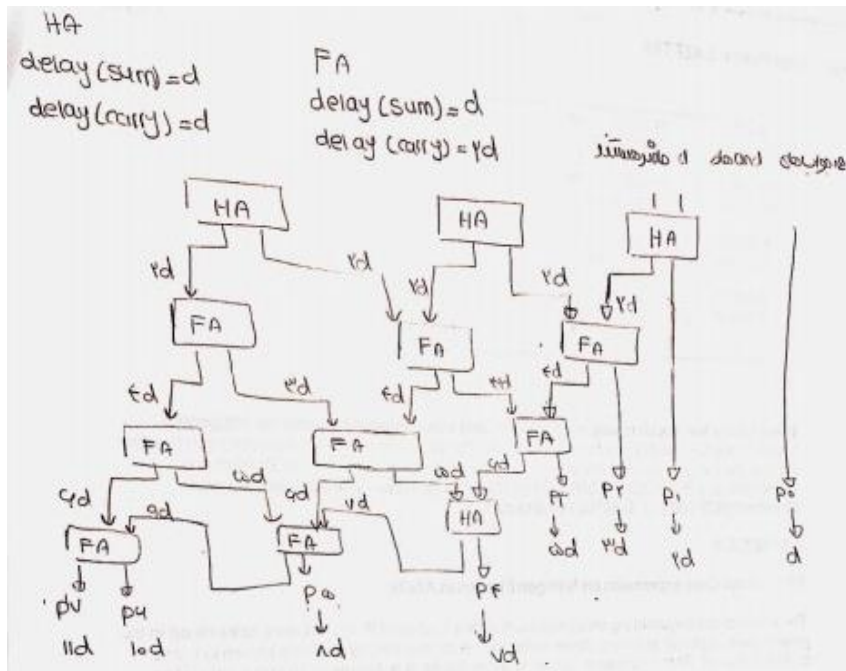 HA
delay (sum) = d
delay (carry) = d
FA
delay (sum) = d
delay (carry) = ۲d
HA HA HA
۲d ۲d ۲d ۲d ۲d
FA FA FA
۴d ۳d ۴d ۳d ۴d
FA FA FA
۶d ۵d ۶d ۵d ۶d
FA ۹d FA ۷d HA
P۳ P۲ P۱ P۰
۵d ۳d ۲d d
P۷ P۶ P۵ P۴
۱۱d ۱۰d ۸d ۷d